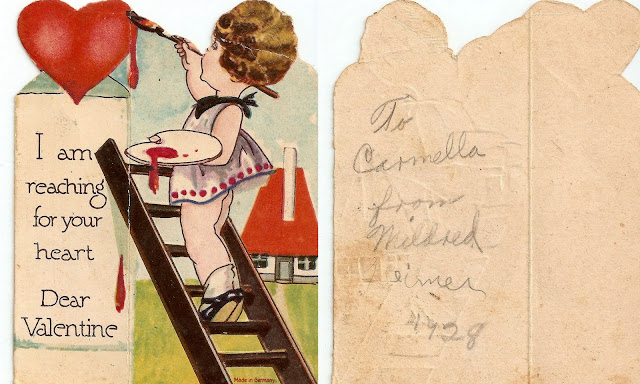 I am
reaching
for your
heart
Dear
Valentine
Made in Germany
To
Carmella
from
Mildred
1928